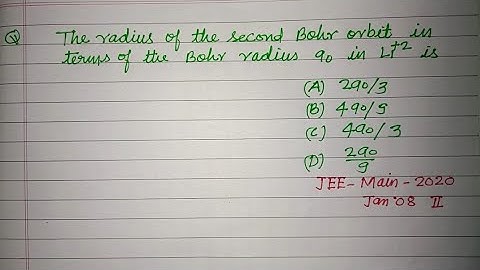 Q The radius of the second Bohr orbit in
terms of the Bohr radius a₀ in Li⁺² is
(A) 2a₀/3
(B) 4a₀/9
(C) 4a₀/3
(D) 2a₀/9
JEE-Main-2020
Jan 08 II